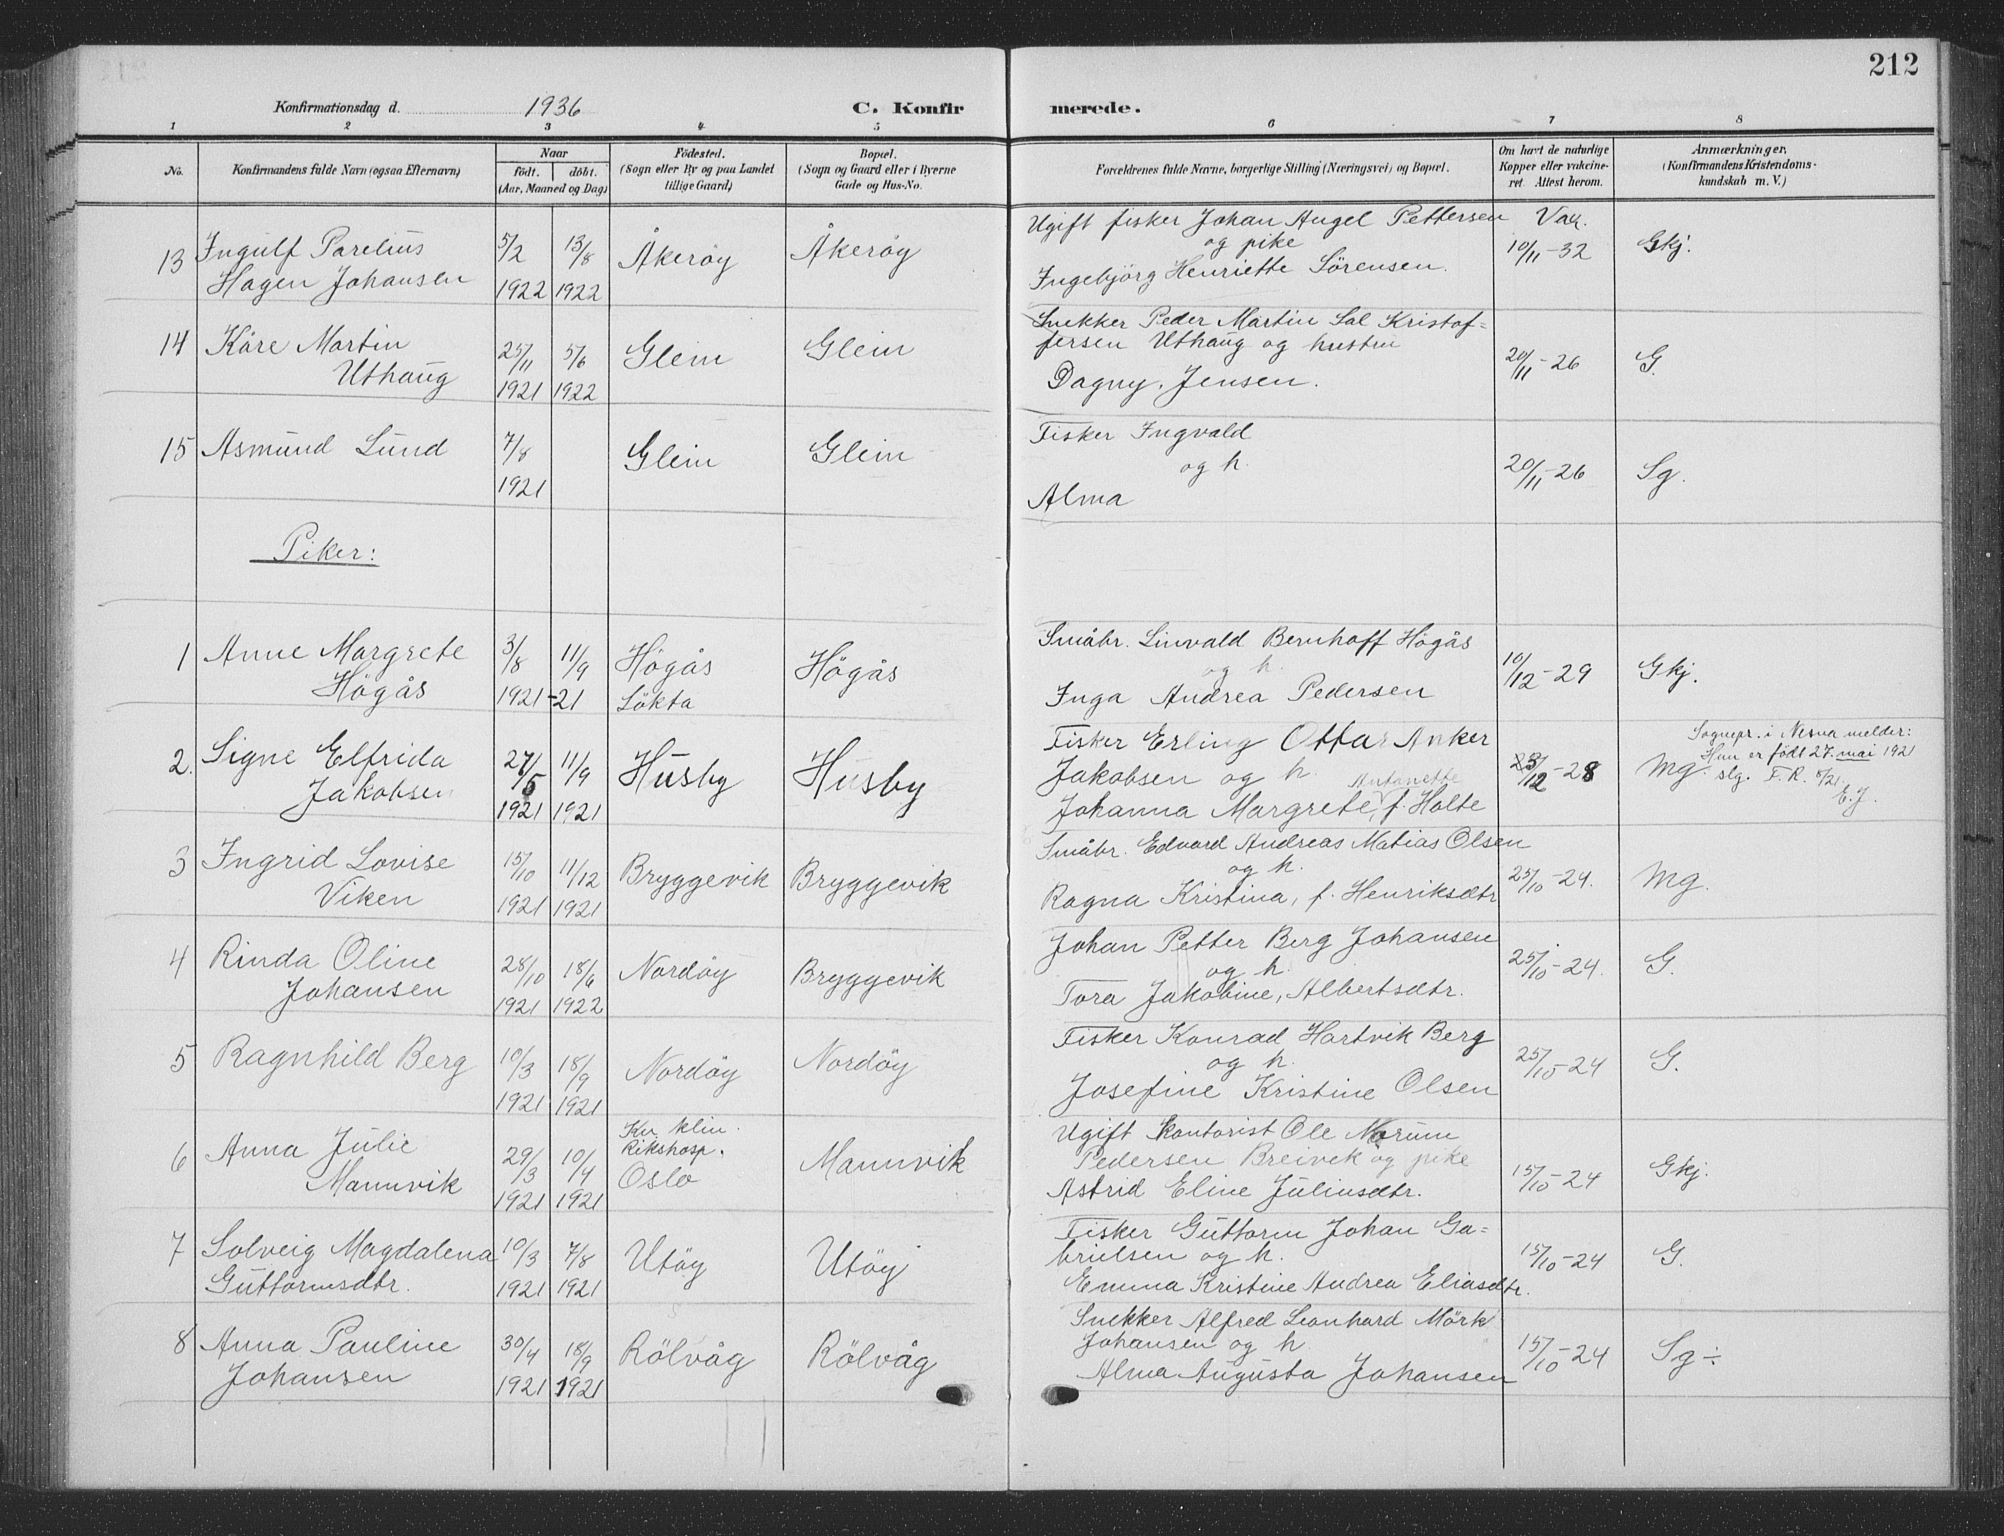 212
Konfirmationsdag d. 1936 C. Konfirmerede.
1 2 3 4 5 6 7 8
No. Konfirmandens fulde Navn (ogsaa Efternavn) Naar født. døbt. (Aar, Maaned og Dag) Fødested. (Sogn eller By og paa Landet tillige Gaard) Bopæl. (Sogn og Gaard eller i Byerne Gade og Hus-No. Forældrenes fulde Navne, borgerlige Stilling (Næringsvei) og Bopæl. Om havt de naturlige Kopper eller vakcineret. Attest herom. Anmærkninger. (Konfirmandens Kristendomskundskab m. V.)
13 Ingulf Parelius 5/2 13/8 Åkeröy Åkeröy Ugift fisker Johan Angel Pettersen Vax. 10/11-32 Gkj.
og pike
Hagen Johansen 1922 1922 Ingebjörg Henriette Sörensen.
14 Kåre Martin 25/11 5/6 Glein Glein Snekker Peder Martin Sal Kristof=
fersen Uthaug og hustru 20/11-26 G.
Uthaug 1921 1922 Dagny. Jensen.
15 Asmund Lund 7/8 Glein Glein Fisker Ingvald
og h. 20/11-26 Sg.
1921 Alma
Piker:
1 Anne Margrete 3/8 11/9 Högås Högås Småbr. Linvald Bernhoff Högås
og h. 10/12-29 Gkj.
Högås 1921-21 Lökta Inga Andrea Pedersen
2. Signe Elfrida 27/5 11/9 Husby Husby Fisker Erling Ottar Anker Sognepr. i Nesna melder:
Jakobsen og h. Antonette 23/12-28 Mg. Hun er født 27. mai 1921
slg. F. R. 8/21.
E.J.
Jakobsen 1921 1921 Johanna Margrete, f. Holte
3 Ingrid Lovise 15/10 11/12 Bryggevik Bryggevik Småbr. Edvard Andreas Matias Olsen
og h. 25/10-24. Mg.
Viken 1921 1921 Ragna Kristina, f. Henriksdtr
4 Rinda Oline 28/10 18/6 Nordöy Bryggevik Johan Petter Berg Johansen
og h. 25/10-24. G.
Johansen 1921 1922 Tora Jakobine, Albertsdtr.
5 Ragnhild Berg 10/3 18/9 Nordöy Nordöy Fisker Konrad Hartvik Berg
og h. 25/10-24 G.
1921 1921 Josefine Kristine Olsen
6 Anna Julie 29/3 10/4 Kv. klin. Rikshosp. Oslo Mannvik Ugift kontorist Ole Norum
Pedersen Breivek og pike 15/10-24 Gkj.
Mannvik 1921 1921 Astrid Eline Juliusdtr.
7 Solveig Magdalena 10/3 7/8 Utöy Utöy Fisker Guttorm Johan Ga=
brielsen og h. 15/10-24 G.
Guttormsdtr. 1921 1921 Emma Kristine Andrea Eliasdtr.
8 Anna Pauline 30/4 18/9 Rölvåg Rölvåg Snekker Alfred Leonhard Mörk
Johansen og h. 15/10-24 Sg÷
Johansen 1921 1921 Alma Augusta Johansen